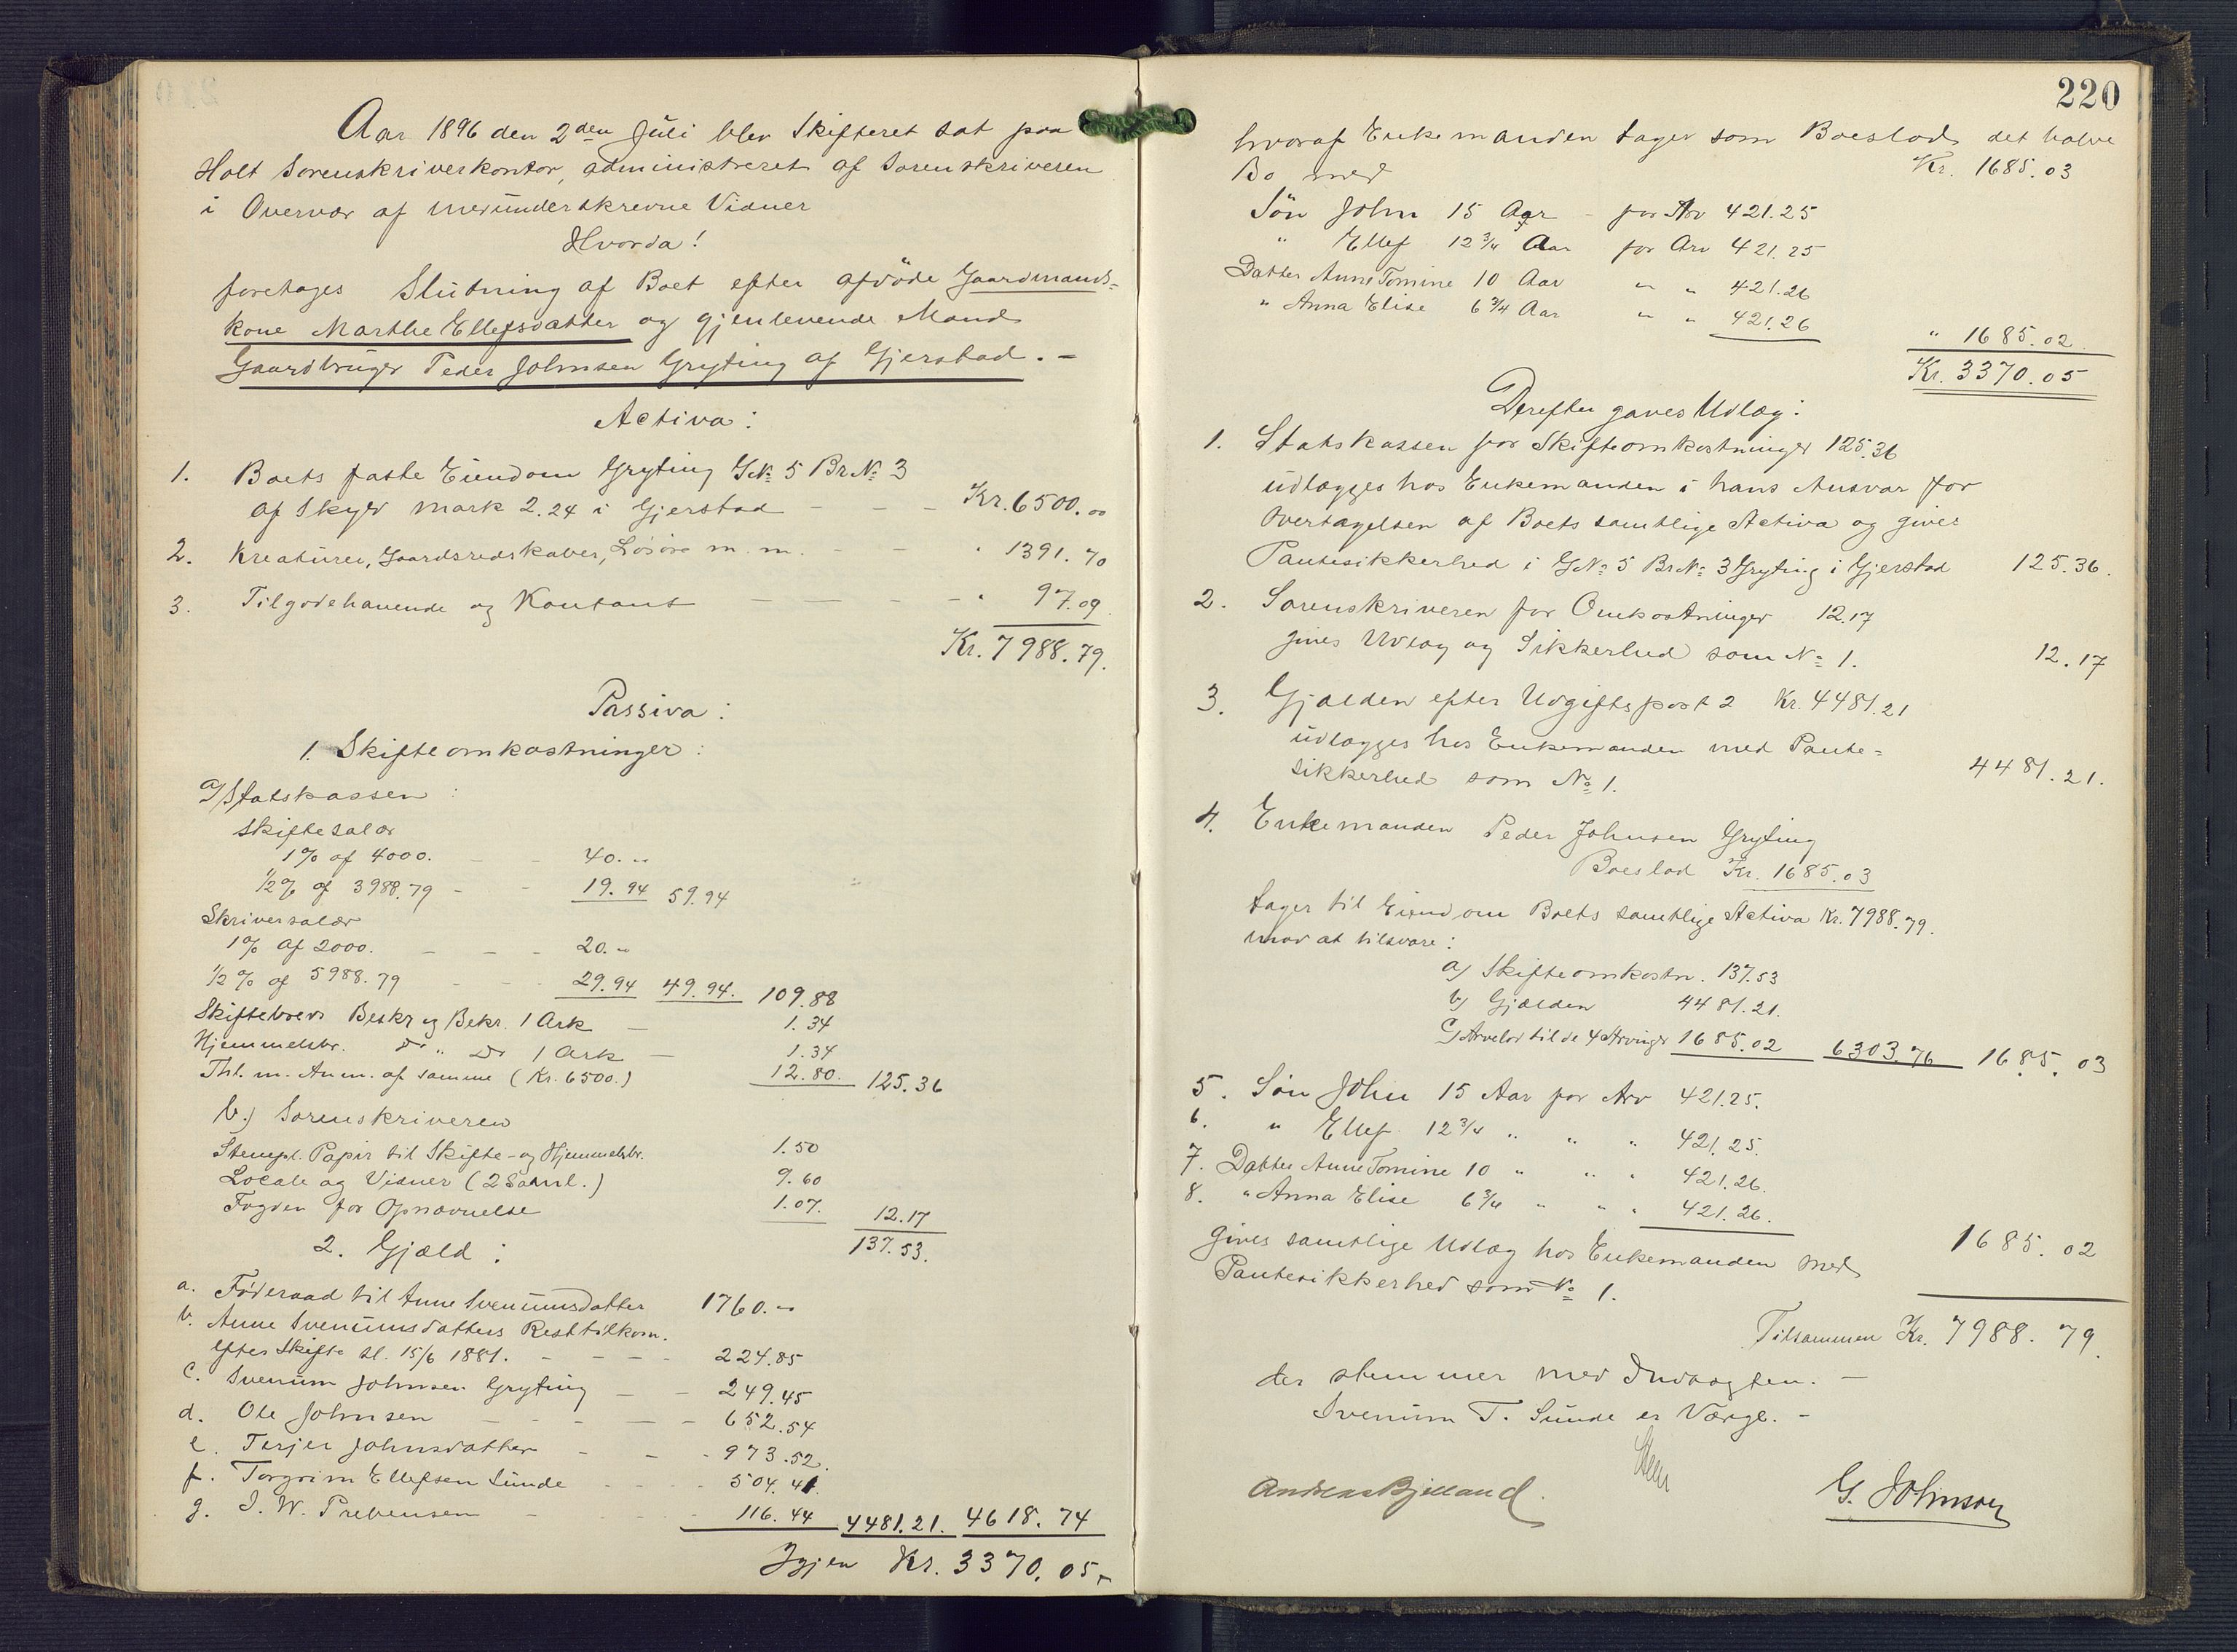 Aar 1896 den 2den Juli blev Skifteret sat paa
Holt Sorenskriverkontor, administreret af Sorenskriveren
i Overvær af medunderskrevne Vidner
Hvorda!
foretages Slutning af Boet efter afdöde Gaardmands-
kone Marthe Ellefsdatter og gjenlevende Mand
Gaardbruger Peder Johnsen Gryting af Gjerstad. -
Activa:
1. Boets faste Eiendom Gryting GNo 5 BrNo 3
af Skyld Mark 2.24 i Gjerstad - - - Kr. 6500.00
2. Kreaturer, Gaardsredskaber, Løsøre m. m. - - " 1391.70
3. Tilgodehavende og Kontant - - - - " 97.09
Kr. 7988.79.
Passiva:
1. Skifteomkostninger:
a) Statskassen:
Skiftesalær
1% af 4000. - - 40. "
1/2% af 3988.79 - - 19.94 59.94
Skriversalær
1% af 2000. - - - 20. "
1/2% af 5988.79 - - - 29.94 49.94. 109.88
Skiftebrevs Beskr og Bekr. 1 Ark - 1.34
Hjemmelsbr. Do " Do 1 Ark - 1.34
Thl. m. Anm. af samme (Kr. 6500.) 12.80. 125.36
b.) Sorenskriveren
Stempl. Papir til Skifte- og Hjemmelsbr. 1.50
Locale og Vidner (2 Saml.) 9.60
Fogden for Opnævnelse 1.07. 12.17
137.53.
2. Gjæld:
a. Föderaad til Anne Svenumsdatter 1760. "
b. Anne Svenumsdatters Resttilkom.
efter Skifte sl. 15/6 1881. - - - - 224.85
c. Svenum Johnsen Gryting - - 249.45
d. Ole Johnsen - - - - - 652.54
e. Terjer Johnsdatter - - - 973.52.
f. Torgrim Ellefsen Sunde - - - 504.41
g. I. W. Prebensen - - - 116.44 4481.21. 4618.74
Igjen Kr. 3370.05 -
220
hvoraf Enkemanden tager som Boeslod det halve
Bo med Kr. 1685.03
Sön John 15 Aar - for Arv 421.25
" Ellef 12 3/4 Aar for Arv 421.25
Datter Anne Tomine 10 Aar " " 421.26
" Anna Elise 6 3/4 Aar " " 421.26
" 1685.02
Kr. 3370.05
Derefter gaves Udlæg:
1. Statskassen for Skifteomkostninger 125.36
udlægges hos Enkemanden i hans Ansvar for
Overtagelsen af Boets samtlige Activa og gives
Pantesikkerhed i GNo 5 BrNo 3 Gryting i Gjerstad 125.36.
2. Sorenskriveren for Omkostninger 12.17
gives Udlæg og Sikkerhed som No 1. 12.17
3. Gjælden efter Udgiftspost 2 Kr. 4481.21
udlægges hos Enkemanden med Pante-
sikkerhed som No 1. 4481.21.
4. Enkemanden Peder Johnsen Gryting
Boeslod Kr. 1685.03
tager til Eiendom Boets samtlige Activa Kr. 7988.79.
mod at tilsvare:
a) Skifteomkostn. 137.53
b) Gjælden 4481.21.
c) Arvelod til de 4 Arvinger 1685.02 6303.76 1685.03
5. Sön John 15 Aar for Arv 421.25.
6. " Ellef 12 3/4 " " " 421.25.
7. Datter Anne Tomine 10 " " " 421.26.
8. " Anna Elise 6 3/4 " " " 421.26.
gives samtlige Udlæg hos Enkemanden med 1685.02
Pantesikkerhed som No 1.
Tilsammen Kr. 7988.79.
der stemmer med Indtægten. -
Svenum T. Sunde er Værge. -
Andreas Bjelland. G. Johnsen